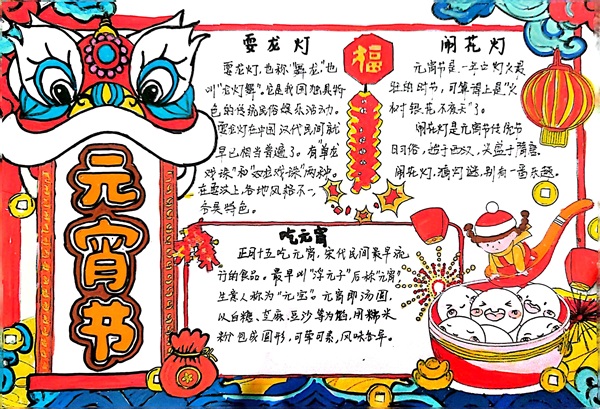 元宵节
耍龙灯
耍龙灯，也称“舞龙”。也
叫“龙灯舞”。它是我国独具特
色的传统民俗娱乐活动。
耍龙灯在中国汉代民间就
早已相当普遍了。有“单龙
戏珠”和“双龙戏珠”两种。
在耍法上，各地风格不一，
各具特色。
福
闹花灯
元宵节是一年中灯火最
旺的时节，可算得上是“火
树银花不夜天”了。
闹花灯是元宵节传统节
日习俗，始于西汉，兴盛于隋唐。
闹花灯，猜灯谜，别有一番乐趣。
吃元宵
正月十五吃元宵，宋代民间最早流
行的食品。最早叫“浮元子”后称“元宵”
生意人称为“元宝”。元宵即汤圆，
以白糖、芝麻、豆沙等为馅，用糯米
粉包成圆形，可荤可素，风味各异。